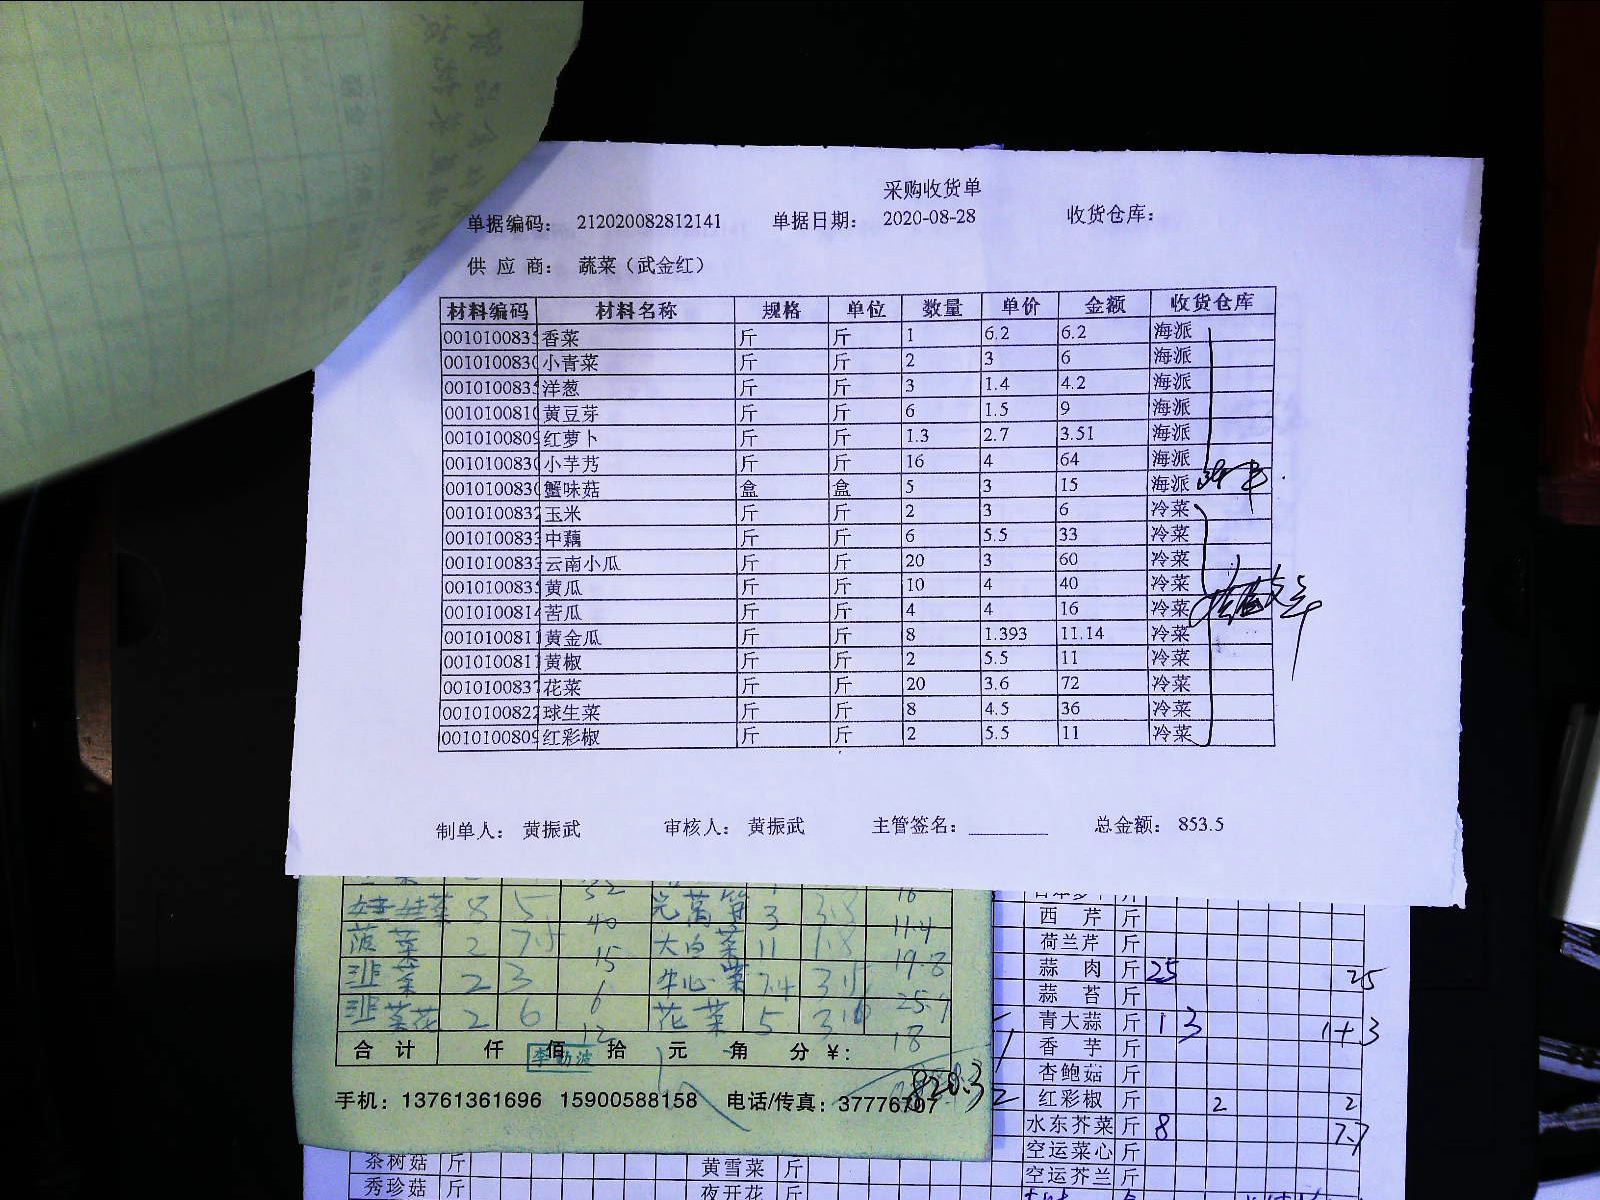 采购收货单
单据编码： 212020082812141 单据日期： 2020-08-28 收货仓库：
供 应 商： 蔬菜（武金红）
材料编码 材料名称 规格 单位 数量 单价 金额 收货仓库
001010083 香菜 斤 斤 1 6.2 6.2 海派
001010083 小青菜 斤 斤 2 3 6 海派
001010083 洋葱 斤 斤 3 1.4 4.2 海派
001010081 黄豆芽 斤 斤 6 1.5 9 海派
001010080 红萝卜 斤 斤 1.3 2.7 3.51 海派
001010083 小芋艿 斤 斤 16 4 64 海派
001010083 蟹味菇 盒 盒 5 3 15 海派
001010083 玉米 斤 斤 2 3 6 冷菜
001010083 中藕 斤 斤 6 5.5 33 冷菜
001010083 云南小瓜 斤 斤 20 3 60 冷菜
001010083 黄瓜 斤 斤 10 4 40 冷菜
001010081 苦瓜 斤 斤 4 4 16 冷菜
001010081 黄金瓜 斤 斤 8 1.393 11.14 冷菜
001010081 黄椒 斤 斤 2 5.5 11 冷菜
001010083 花菜 斤 斤 20 3.6 72 冷菜
001010082 球生菜 斤 斤 8 4.5 36 冷菜
001010080 红彩椒 斤 斤 2 5.5 11 冷菜
制单人： 黄振武 审核人： 黄振武 主管签名： 总金额： 853.5
32 16
娃娃菜 8 5 40 3 11.4
菠菜 2 7.5 15 大白菜 11 1.8 19.8
韭菜 2 3 6 牛心菜
韭菜花 2 6 12 花菜 5 3.6 18
合 计 仟 佰 拾 元 角 分 ¥:
李勤波
820.3
手机：13761361696 15900588158 电话/传真：37776707
西 芹 斤
荷兰芹 斤
蒜 肉 斤 25 25
蒜 苔 斤
青大蒜 斤 1 3 1+3
香 芋 斤
杏鲍菇 斤
红彩椒 斤 2 2
水东芥菜 斤 8 7.7
空运菜心 斤
空运芥兰 斤
茶树菇 斤 黄雪菜 斤
秀珍菇 斤 夜开花 斤